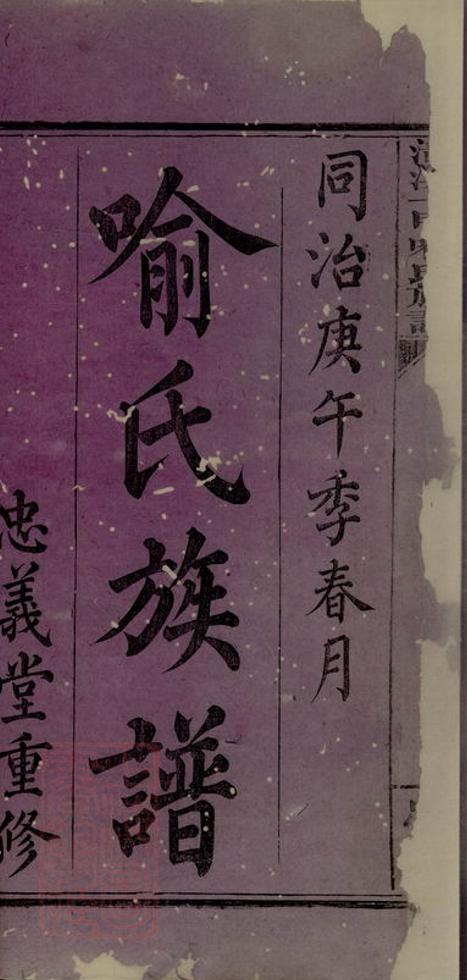 同治庚午季春月
喻氏族譜
忠義堂重修